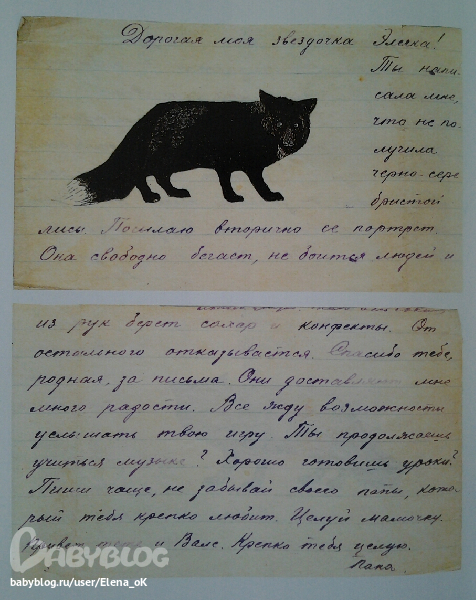 Дорогая моя звездочка Элсха!
Ты напи-
сала мне,
что не по-
лучила
черно-сере
бристой
лисы. Посылаю вторично ее портрет.
Она свободно бегает, не боится людей и
из рук берет сахар и конфекты. От
остального отказывается. Спасибо тебе,
родная, за письма. Они доставляют мне
много радости. Все жду возможности
услышать твою игру. Ты продолжаешь
учиться музыке? Хорошо готовишь уроки?
Пиши чаще, не забывай своего папы, кото-
рый тебя крепко любит. Целуй мамочку.
Привет тете и Вале. Крепко тебя целую.
Папа.
BABYBLOG
babyblog.ru/user/Elena_oK